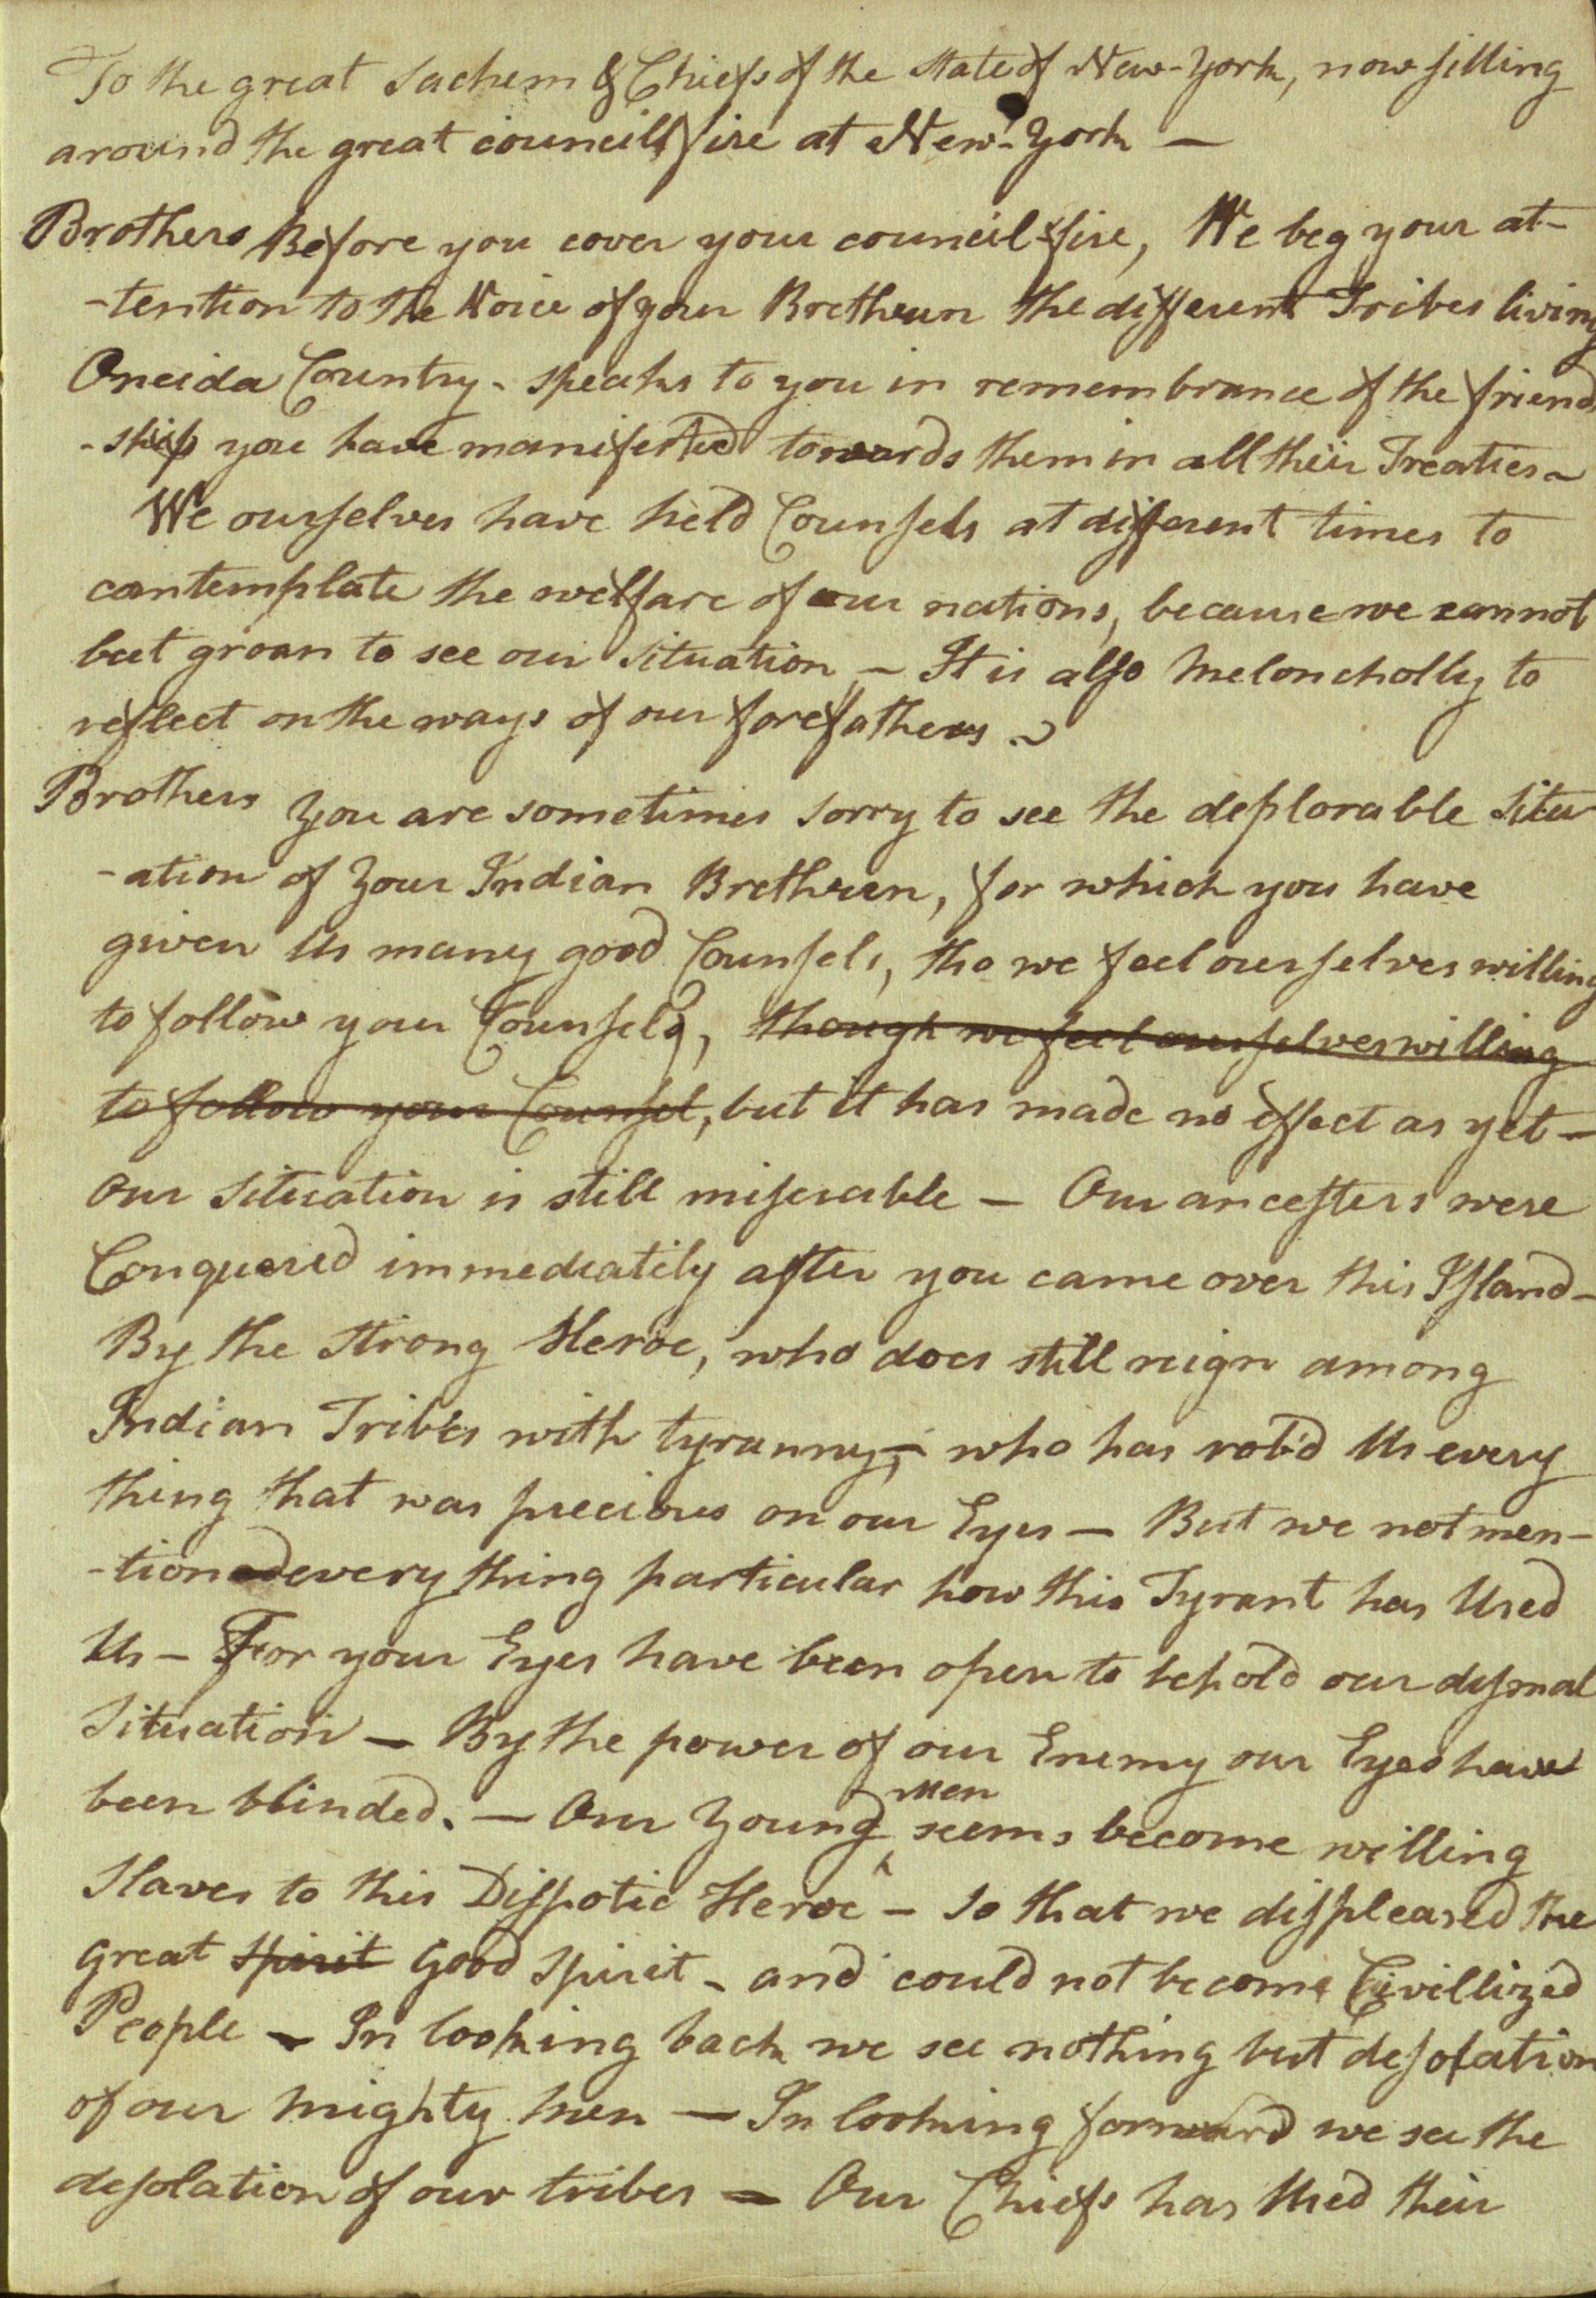 To the great Sachem & Chiefs of the State of New-York, now sitting
around the great councill fire at New-York —
Brothers Before you cover your council-fire, We beg your at-
-tention to the Voice of your Brethren the different Tribes living
Oneida Country - speaks to you in remembrance of the friend
-ship you have manifested towards them in all their Treaties ~
We ourselves have held Counsels at different times to
contemplate the welfare of our nations, because we cannot
but groan to see our Situation — It is also Meloncholly to
reflect on the ways of our forefathers. ~
Brothers You are sometimes Sorry to see the deplorable Situ
-ation of Your Indian Brethren, for which you have
given Us many good Counsels, tho we feel ourselves willing
to follow your Counsels, though we feel ourselves willing
to follow your Counsel, but it has made no effect as yet —
Our Situation is still miserable — Our ancesters were
Conquered immediatily after you came over this Island —
By the Strong Heroe, who does still reign among
Indian Tribes with tyranny; — who has rob'd Us every
thing that was precious on our Eyes — But we not men-
-tioned every thing particular how this Tyrant has Used
Us — For your Eyes have been open to behold our dismal
Situation — By the power of our Enemy our Eyes have
been blinded. — Our Young Men seems become willing
Slaves to this Dispotic Heroe — So that we displeased the
great spirit Good Spirit - and could not become Civillized
People — In looking back we see nothing but desolation
of our mighty men — In looking forward we see the
desolation of our tribes — Our Chiefs has Used their